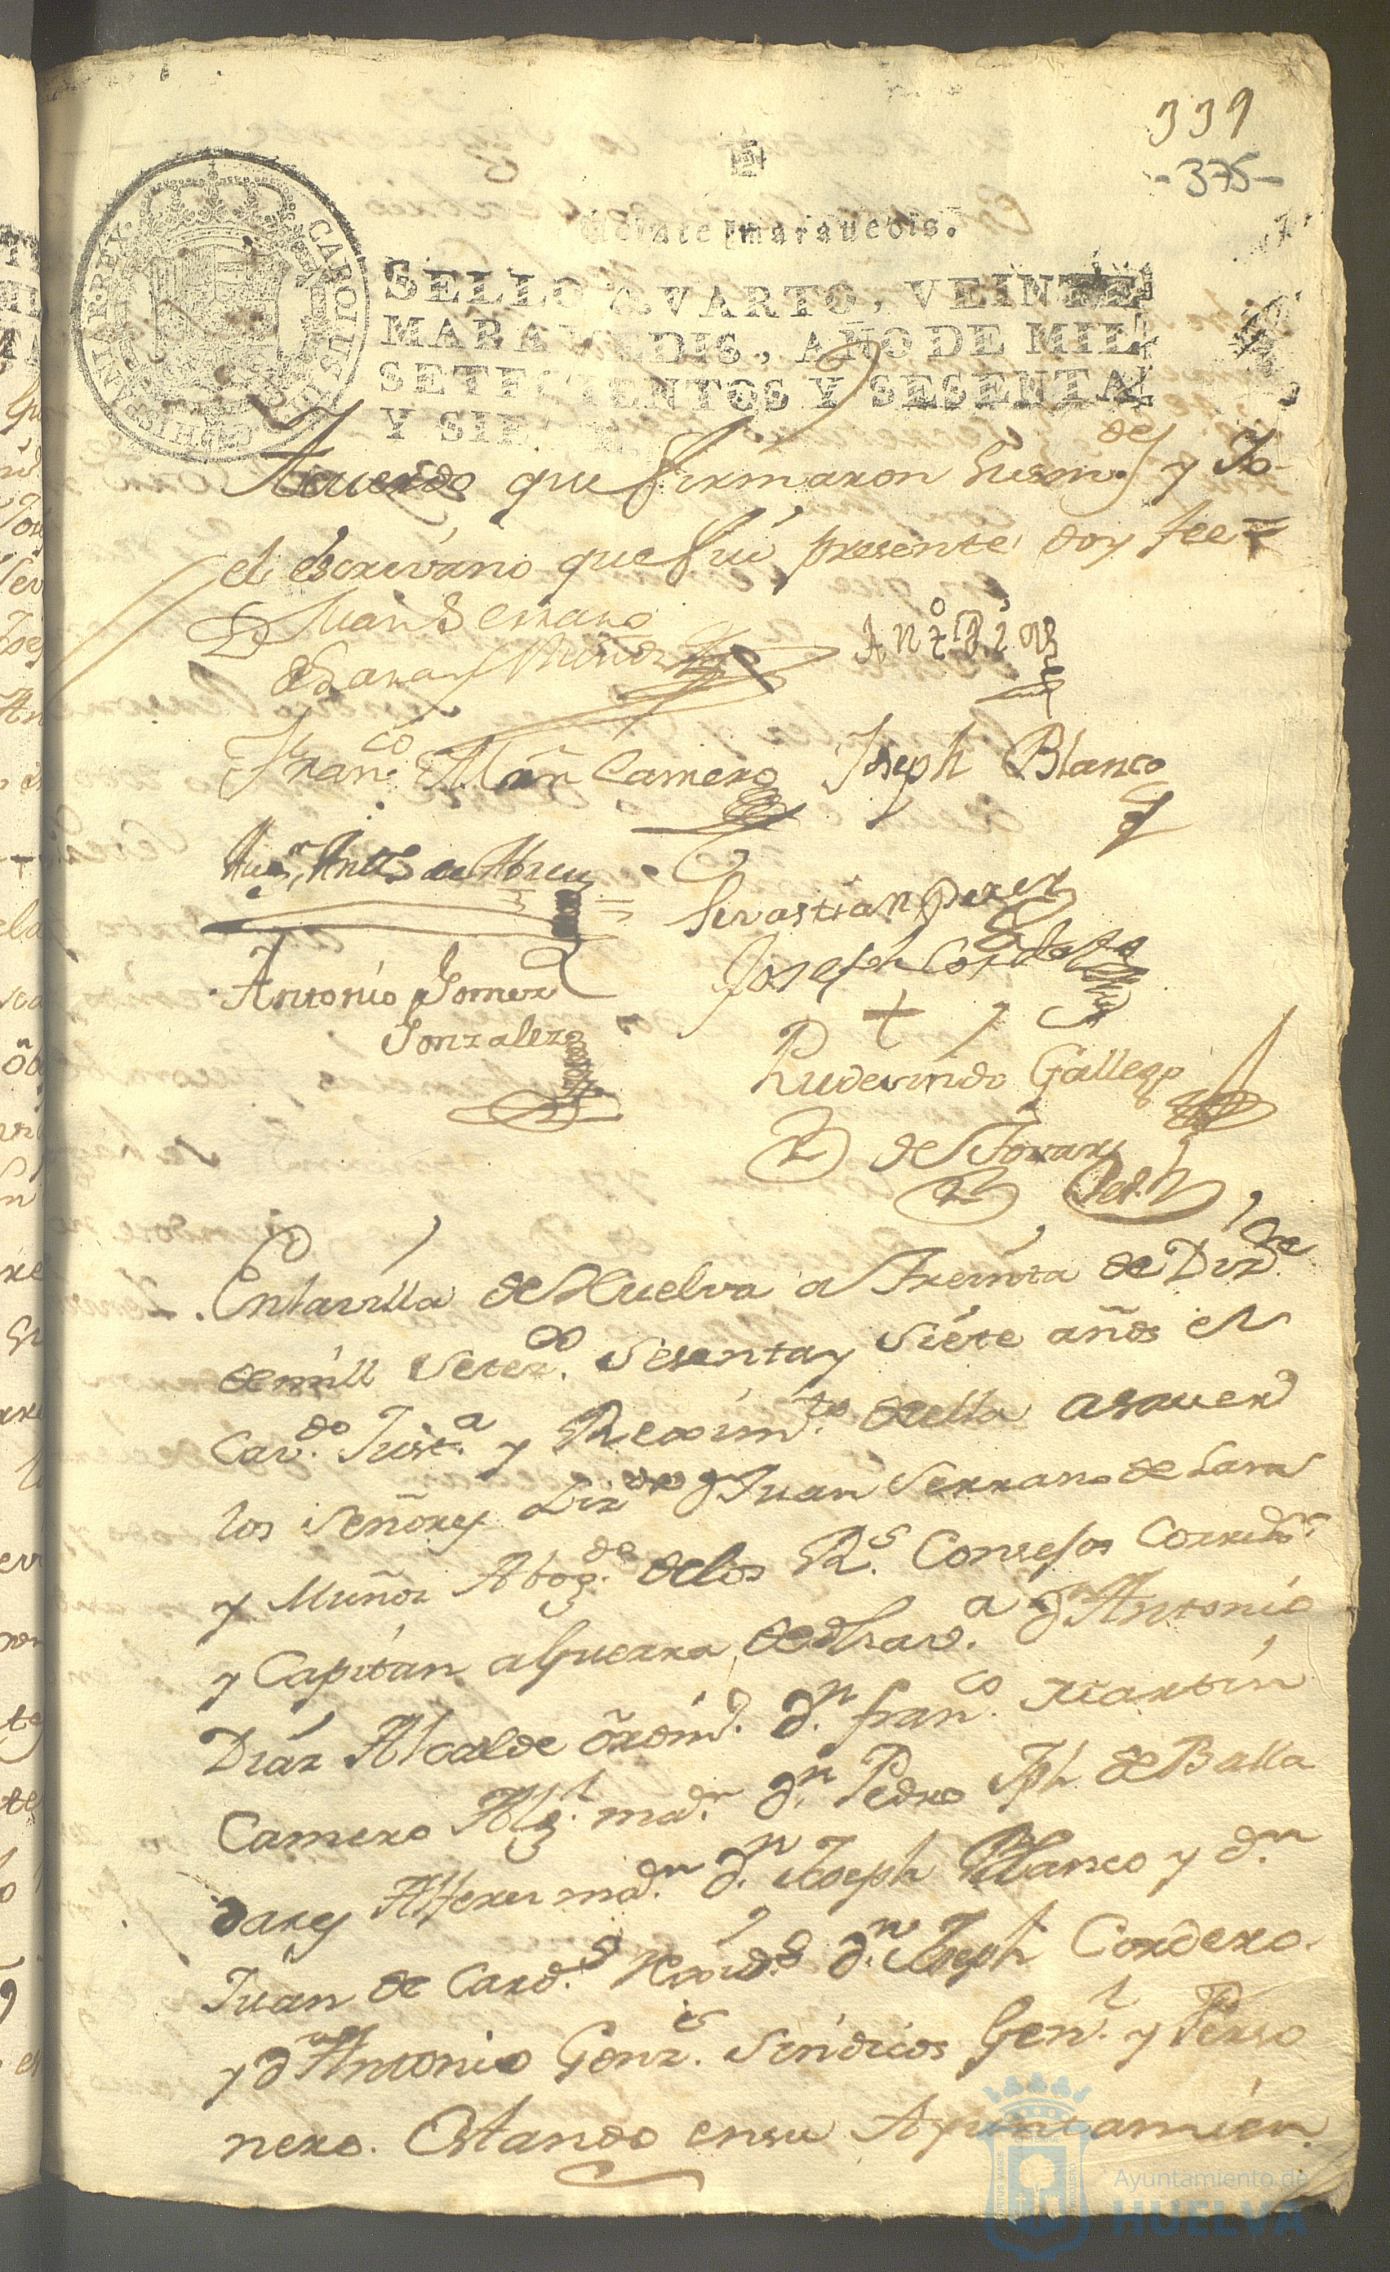 339
-375-
Veinte maravedis.
SELLO QVARTO, VEINTE
MARAVEDIS, AÑO DE MIL
SETECIENTOS Y SESENTA
Y SIE
CAROLUS III D G HISPANIA E REX
Acuerdo que firmaron susm.des y Yo
el escrivano que fui presente doy fee =
Juan Serrano
de Lara y Muñoz
Ant.o Diaz
Fran.co Mãrn Camero
Joseph Blanco
Juan Ant.o de Abreu
Sevastian Perez
Antonio Gomez
Gonzalez
Joseph Cordero
Ruderindo Gallego
de Tovar
En la villa de Huelva a Treinta de Diz.re
de mill Setez.os Sesenta y Siete años el
Cav.do Just.a y Reximi.to de ella asaver
los Señores Liz.do dn Juan Serrano de Lara
y Muñoz Abog.do de los R.s Consejos Corre.dor
y Capitan a Guerra de dha v.a dn Antonio
Diaz Alcalde ordin.o d.n fran.co Martin
Camero Alg.l ma.r d.n Pedro Jph de Balla
dares Alferez ma.r d.n Joseph Blanco y d.n
Juan de Card.s Rexid.s d.n Joseph Cordero
y dn Antonio Gonz.s Sindicos Gen.l y Perso
nero. Estando en su Ayuntamien
Ayuntamiento de
HUELVA